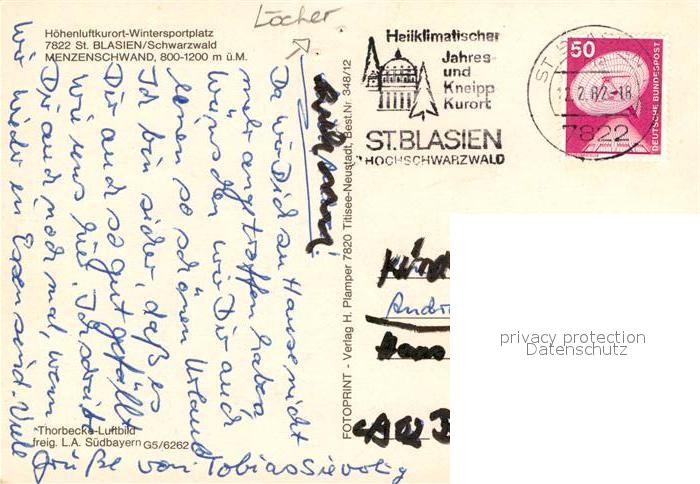 Löcher
Höhenluftkurort-Wintersportplatz
7822 St. BLASIEN/Schwarzwald
MENZENSCHWAND, 800-1200 m ü.M.
Da wir Dich zu Hause nicht
mehr angetroffen haben
wünschen wir Dir auch
einen so schönen Urlaub
Ich bin sicher, daß es
Dir auch so gut gefällt
wie uns hier. Ich schreib
Dir auch noch mal, wenn
wir wieder in Essen sind. Viele
Grüße von Tobias
Thorbecke-Luftbild
freig. L.A. Südbayern G5/6262
FOTOPRINT - Verlag H. Plamper 7820 Titisee-Neustadt, Best.Nr 348/12
Heilklimatischer
Jahres-
und
Kneipp
Kurort
ST.BLASIEN
HOCHSCHWARZWALD
ST. BLASIEN
12.2.82.-18
7822
50
DEUTSCHE BUNDESPOST
privacy protection
Datenschutz